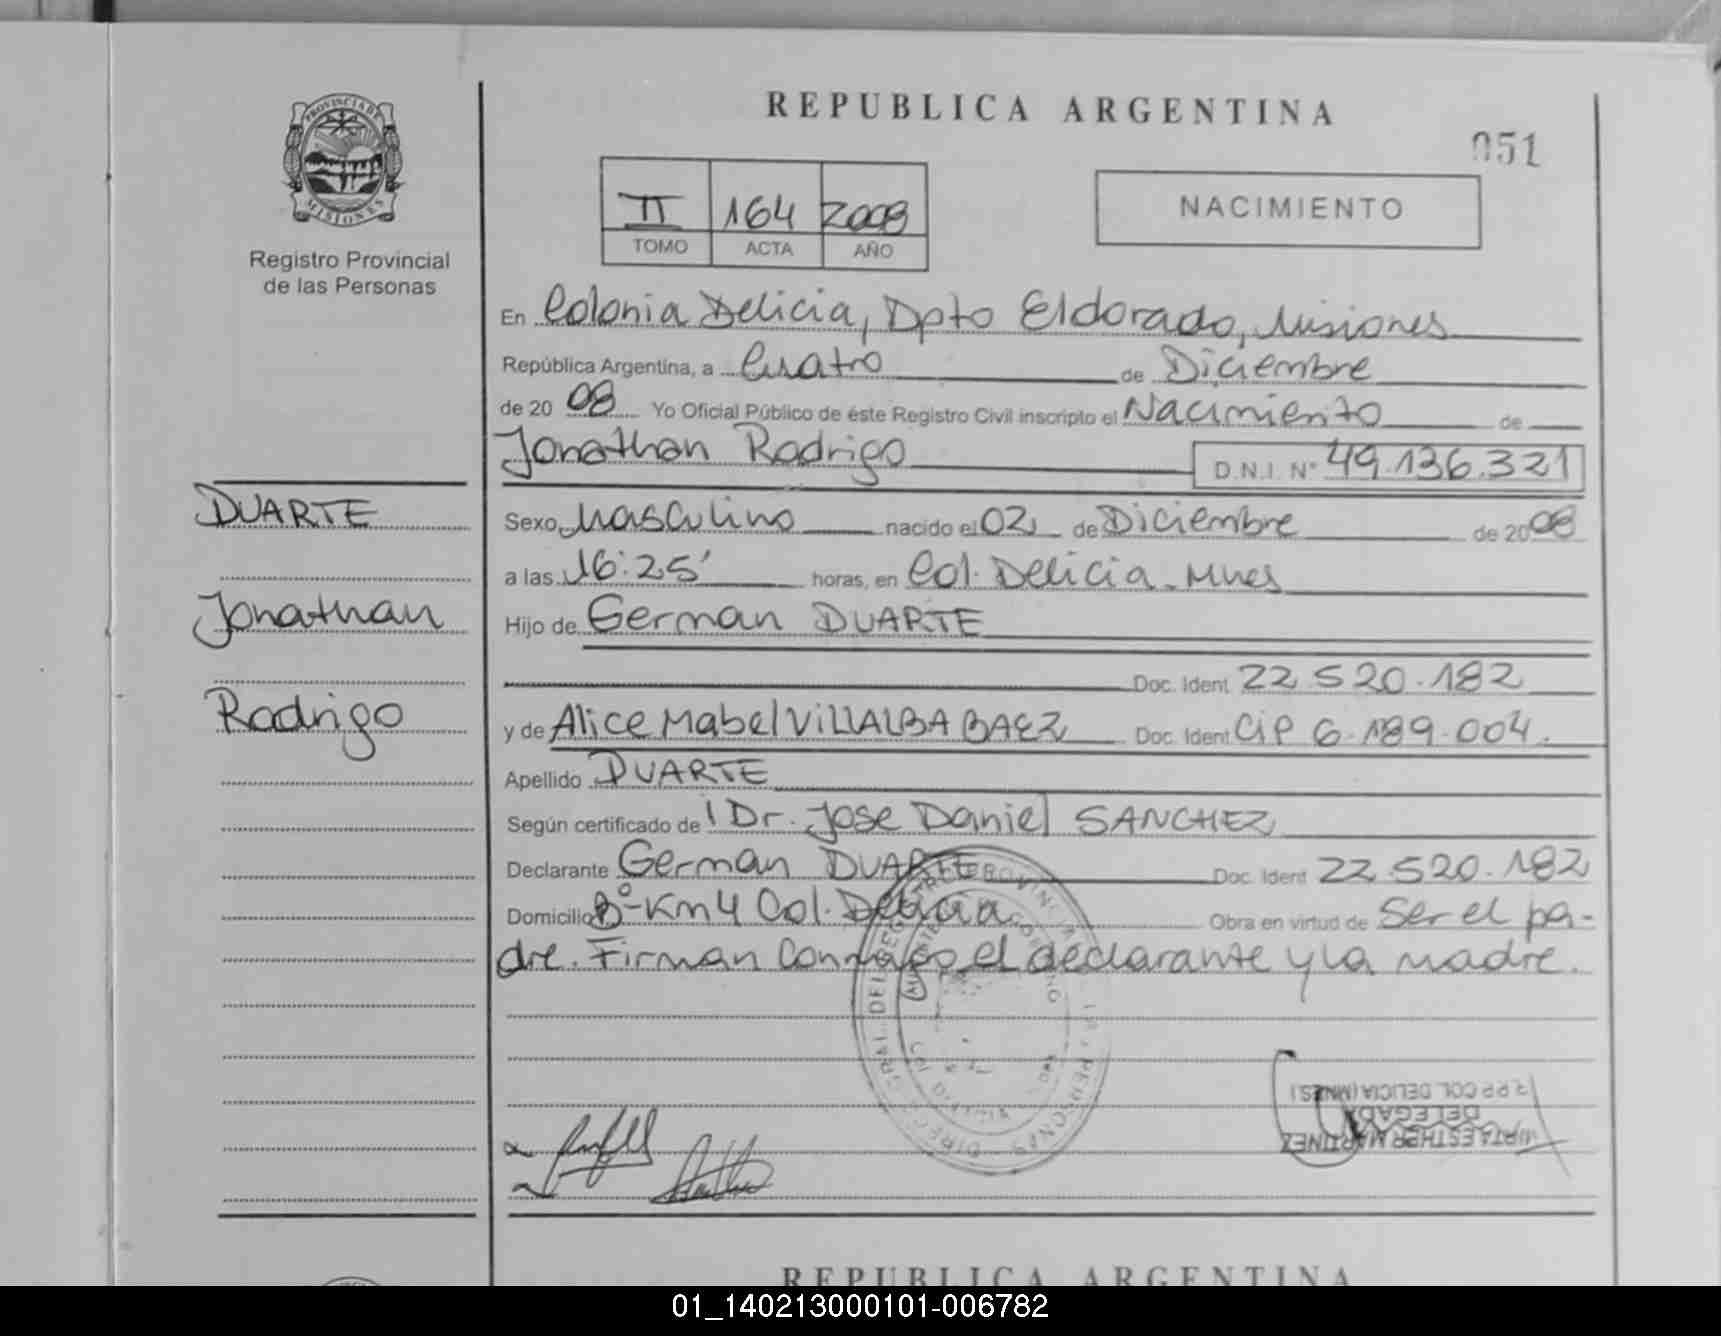 REPUBLICA ARGENTINA
051
PROVINCIA DE
MISIONES
Registro Provincial
de las Personas
II 164 2008
TOMO ACTA AÑO
NACIMIENTO
En Colonia Delicia, Dpto Eldorado, Misiones
República Argentina, a Cuatro de Diciembre
de 20 08 Yo Oficial Público de éste Registro Civil inscripto el Nacimiento de
Jonathan Rodrigo D.N.I. Nº 49.136.321
DUARTE
Jonathan
Rodrigo
Sexo Masculino nacido el 02 de Diciembre de 2008
a las 16:25' horas, en Col. Delicia - Mnes
Hijo de German DUARTE
Doc. Ident 22.520.182
y de Alice Mabel VILLALBA BAEZ Doc. Ident CIP 6.189.004.
Apellido DUARTE
Según certificado de Dr. Jose Daniel SANCHEZ
Declarante German DUARTE Doc. Ident 22.520.182
Domicilio Bº Km 4 Col. Delicia Obra en virtud de Ser el pa-
dre. Firman Conmigo el declarante y la madre.
MIRTA ESTHER MARTINEZ
DELEGADA
R.P.P. COL. DELICIA (MNES.)
REPUBLICA ARGENTINA
01_140213000101-006782